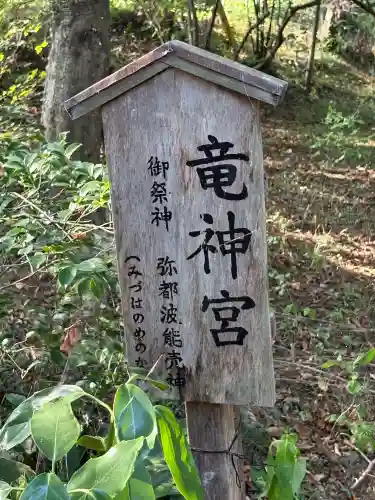 竜神宮
御祭神
弥都波能売神
(みづはのめの